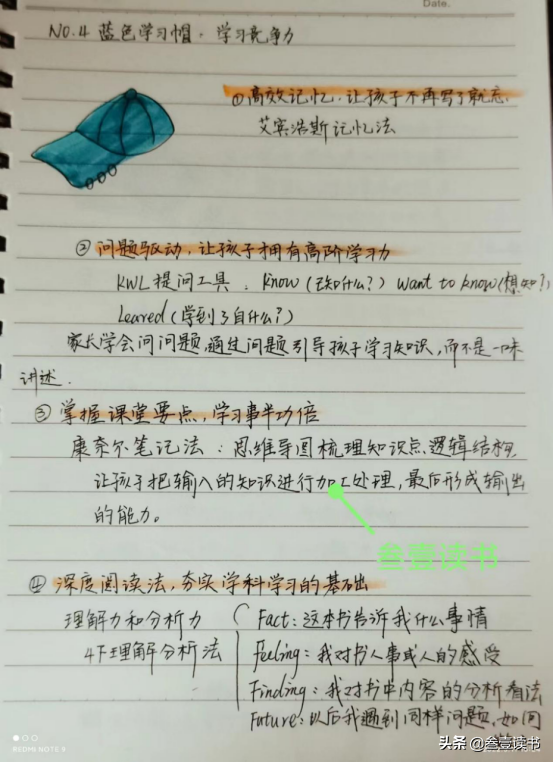 Date.
NO.4 蓝色学习帽·学习竞争力
①高效记忆,让孩子不再写了就忘.
艾宾浩斯记忆法
②问题驱动,让孩子拥有高阶学习力
KWL提问工具: Know(已知什么?) Want to know(想知?)
Leared(学到了自什么?)
家长学会问问题,通过问题引导孩子学习知识,而不是一味
讲述.
③掌握课堂要点,学习事半功倍
康奈尔笔记法:思维导图梳理知识点逻辑结构.
让孩子把输入的知识进行加工处理,最后形成输出
的能力。
叁壹读书
④深度阅读法,夯实学科学习的基础出
理解力和分析力
Fact:这本书告诉我什么事情
4F理解分析法
Feeling:我对书人事或人的感受
Finding:我对书中内容的分析看法
Future:以后我遇到同样问题,如何
REDMI NOTE 9
头条 @叁壹读书